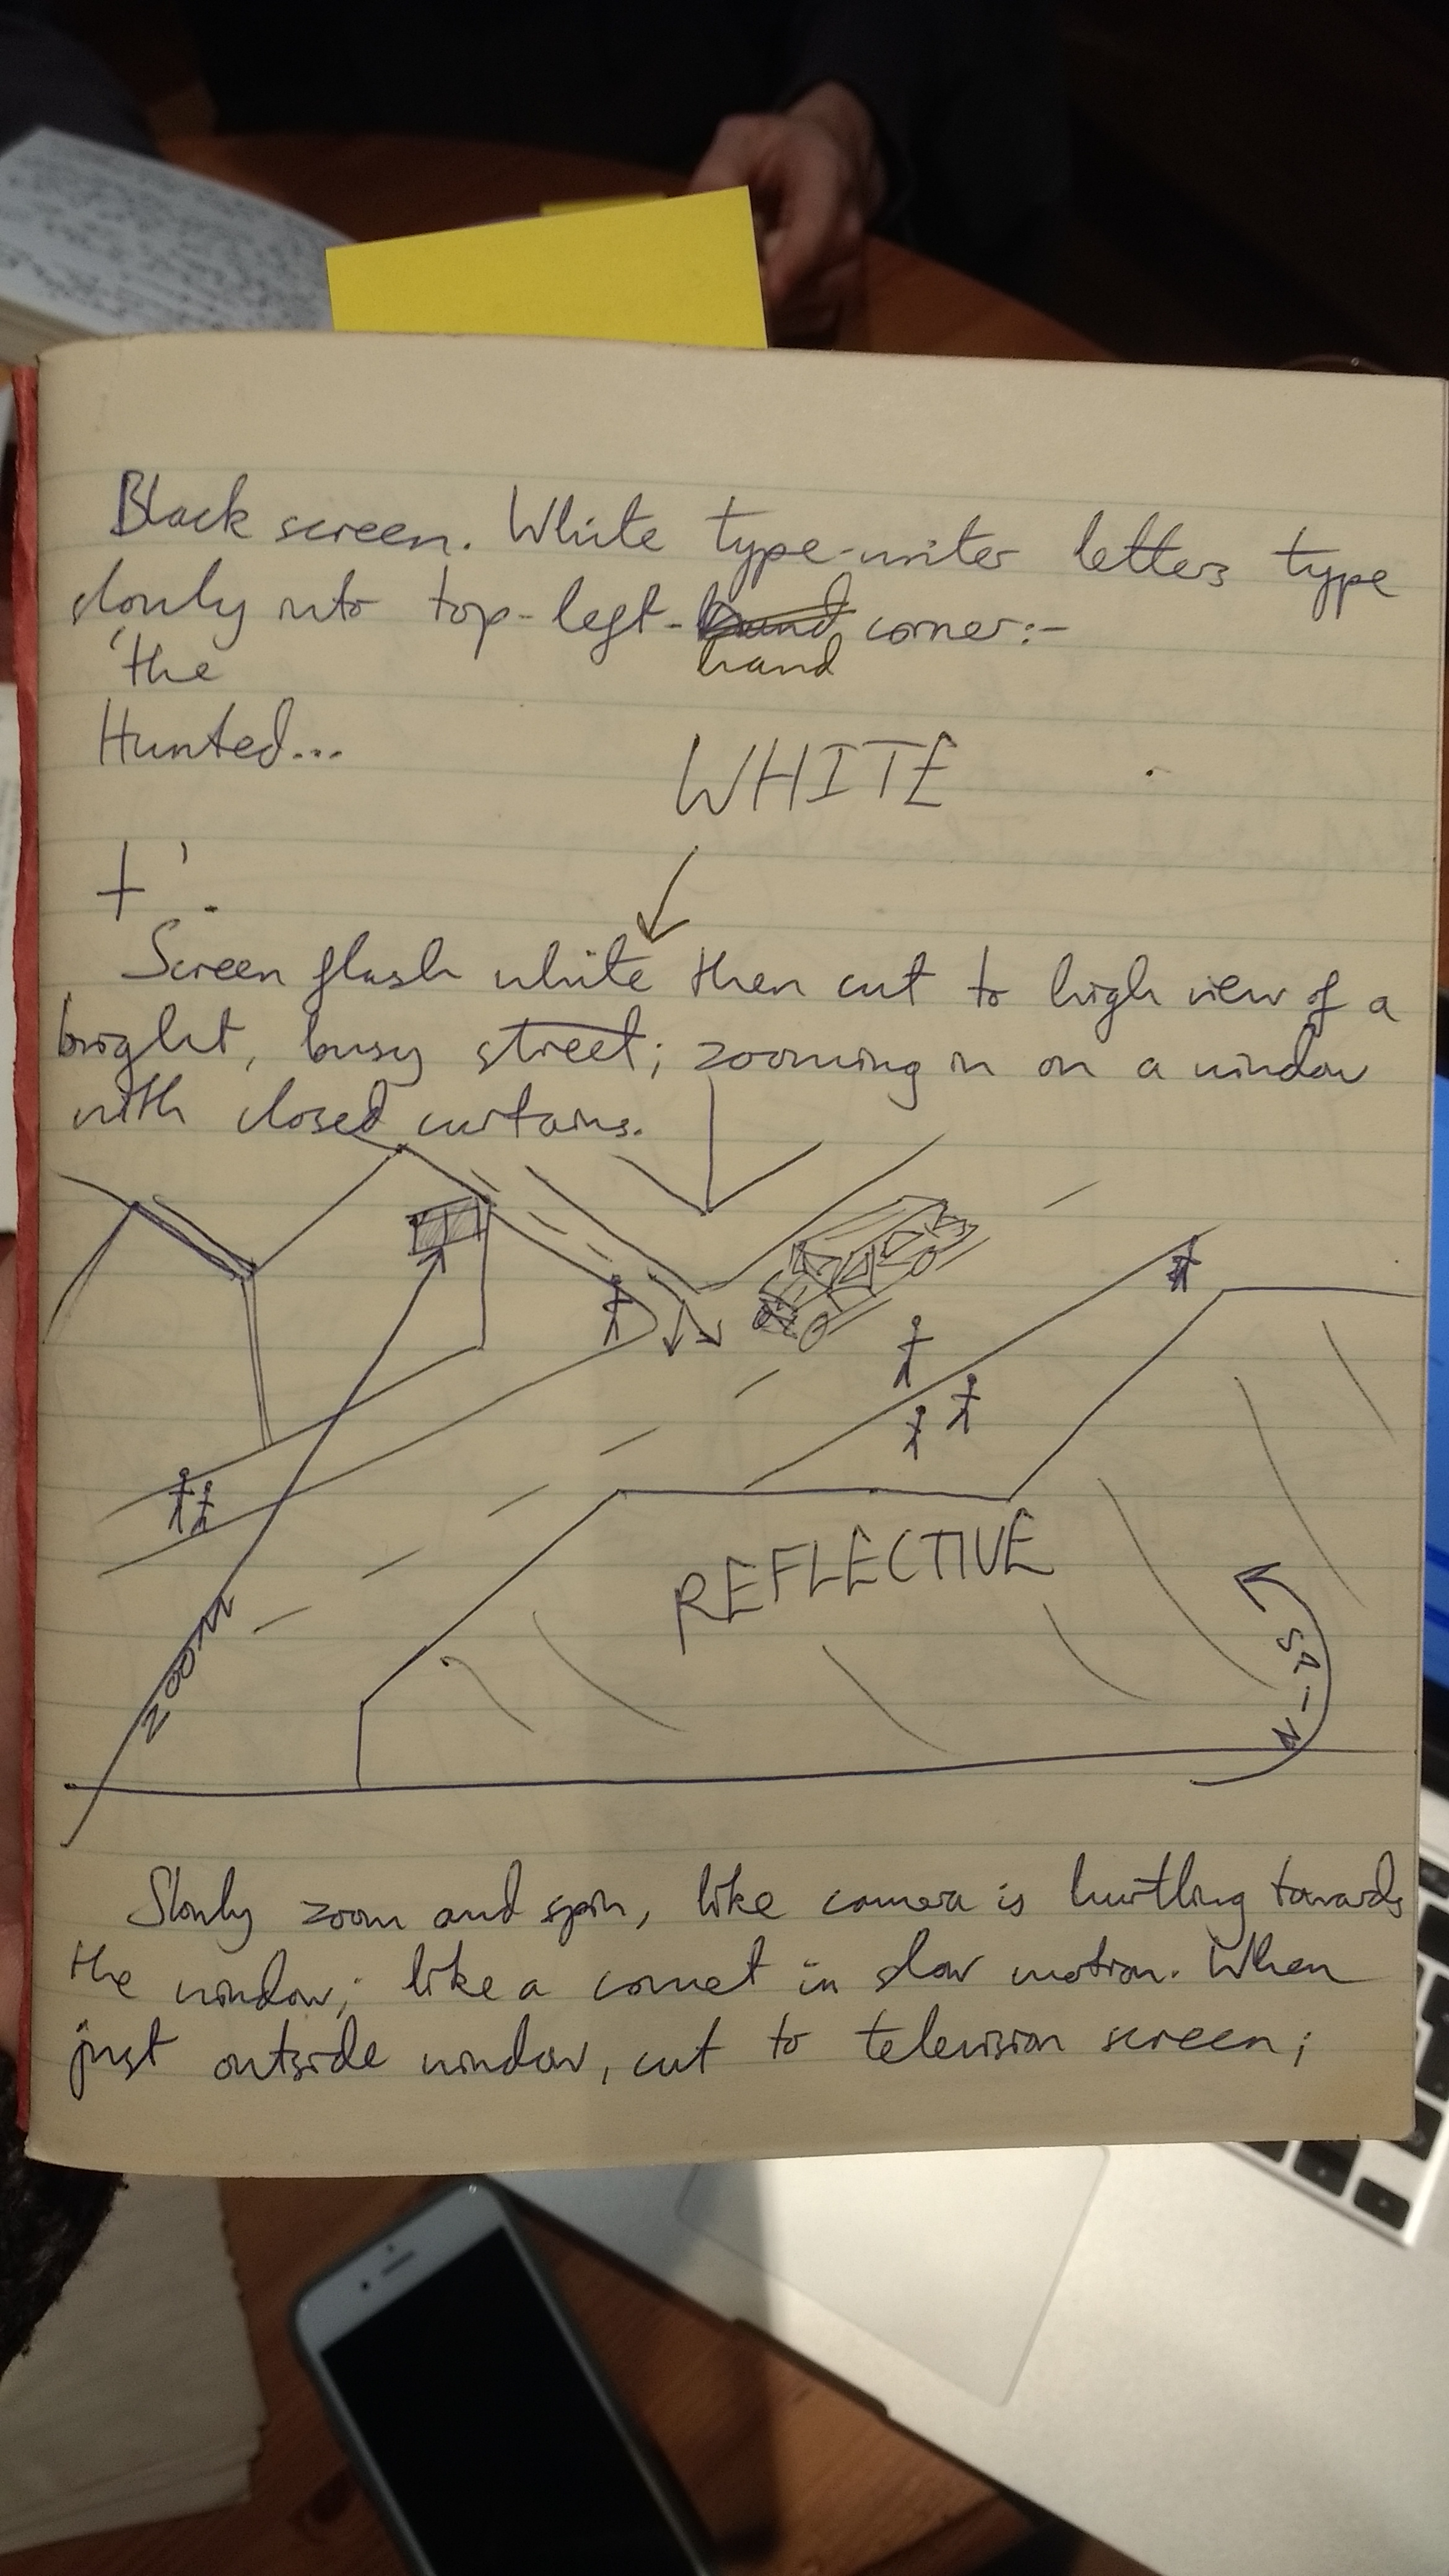 Black screen. White type-writer letters type
slowly into top-left-hand corner:-
hand
'the
Hunted...
WHITE
+'.
Screen flash white then cut to high view of a
bright, busy street; zooming in on a window
with closed curtains.
REFLECTIVE
ZOOM
SPIN
Slowly zoom and spin, like camera is hurtling towards
the window; like a comet in slow motion. When
just outside window, cut to television screen;